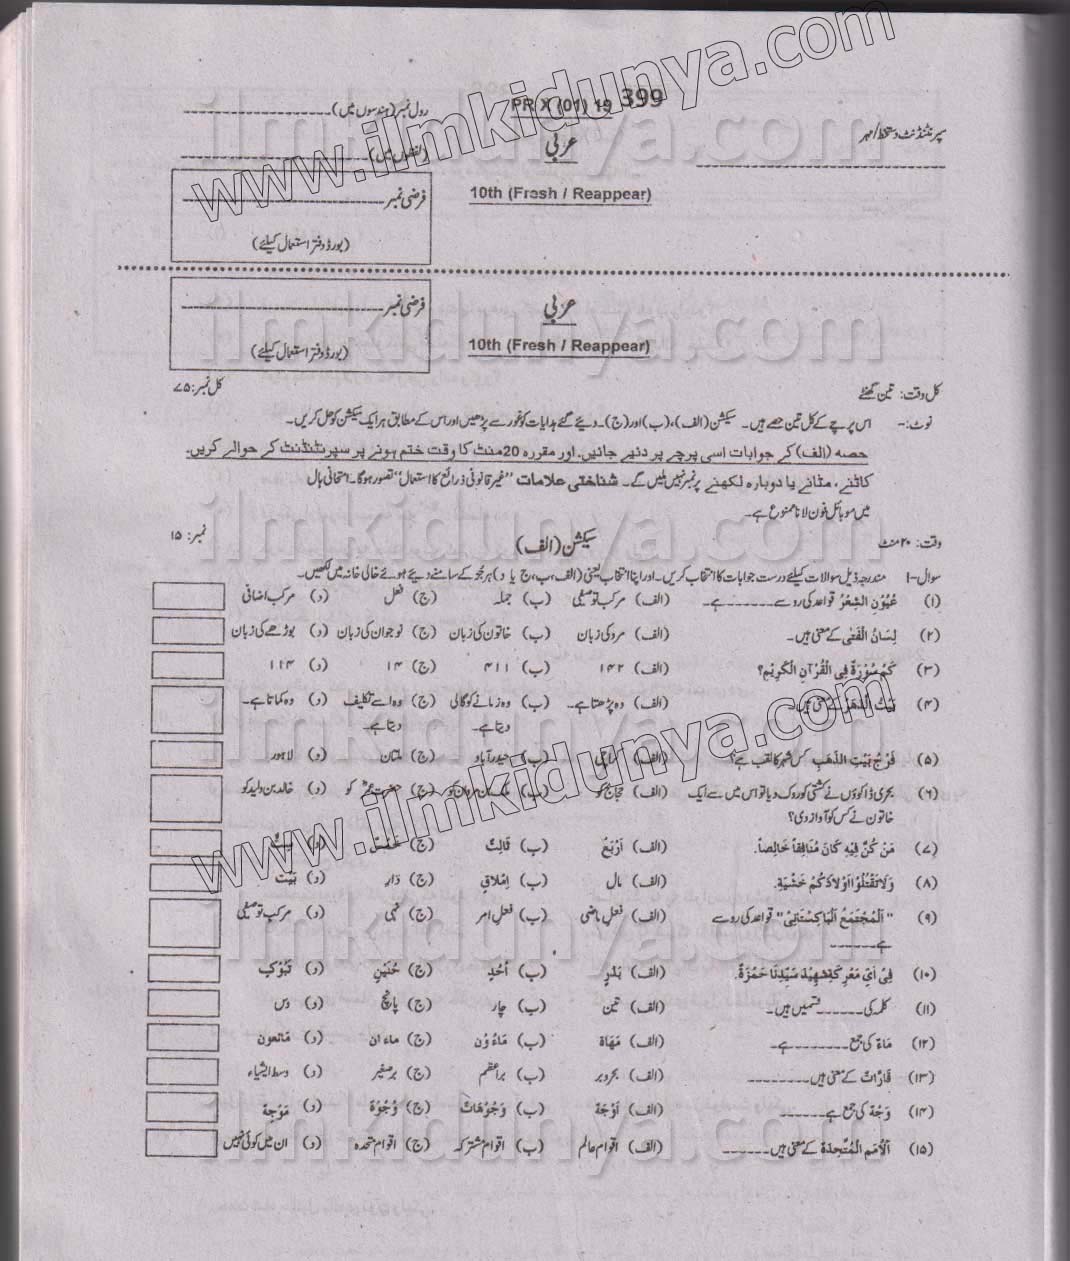 www.ilmkidunya.com
PR X (01) 19 399
رول نمبر (ہندسوں میں)
سپرنٹنڈنٹ دستخط/مہر
عربی
(لفظوں میں)
10th (Fresh / Reappear)
فرضی نمبر
(بورڈ دفتر استعمال کیلئے)
عربی
فرضی نمبر
10th (Fresh / Reappear)
(بورڈ دفتر استعمال کیلئے)
کل وقت: تین گھنٹے کل نمبر: ۷۵
نوٹ:- اس پرچے کے کل تین حصے ہیں۔ سیکشن (الف)، (ب) اور (ج)۔ دیئے گئے ہدایات کو غور سے پڑھیں اور اس کے مطابق ہر ایک سیکشن کو حل کریں۔
حصہ (الف) کے جوابات اسی پرچے پر دئیے جائیں. اور مقررہ 20 منٹ کا وقت ختم ہونے پر سپرنٹنڈنٹ کے حوالے کریں.
کاٹنے، مٹانے یا دوبارہ لکھنے پر نمبر نہیں ملیں گے۔ شناختی علامات "غیر قانونی ذرائع کا استعمال" تصور ہوگا۔ امتحانی ہال
میں موبائل فون لانا ممنوع ہے۔
وقت: ۲۰ منٹ سیکشن (الف) نمبر: ۱۵
سوال-۱ مندرجہ ذیل سوالات کیلئے درست جوابات کا انتخاب کریں۔ اور اپنا انتخاب یعنی (الف، ب، ج یا د) ہر جُز کے سامنے دیئے ہوئے خالی خانہ میں لکھیں۔
(۱) عُيُوْنِ الشِّعْرُ قواعد کی رو سے ------- ہے۔ (الف) مرکب توصیفی (ب) جملہ (ج) فعل (د) مرکب اضافی
(۲) لِسَانُ الْفَتٰى کے معنی ہیں۔ (الف) مرد کی زبان (ب) خاتون کی زبان (ج) نوجوان کی زبان (د) بوڑھے کی زبان
(۳) كَمْ سُوْرَةً فِى الْقُرْآنِ الْكَرِيْمِ؟ (الف) ۱۴۲ (ب) ۴۱۱ (ج) ۱۴ (د) ۱۱۴
(۴) الدَّهْرَ کے معنی ہیں۔ (الف) وہ پڑھتا ہے۔ (ب) وہ زمانے کو گالی دیتا ہے۔ (ج) وہ اسے تکلیف دیتا ہے۔ (د) وہ کماتا ہے۔
(۵) فَرْجُ بَيْتِ الذَّهَبِ کس شہر کا لقب ہے؟ (الف) کراچی (ب) حیدر آباد (ج) ملتان (د) لاہور
(۶) بحری ڈاکوؤں نے کشتی کو روک دیا تو اس میں سے ایک (الف) حجاج کو (ب) ملک بن مروان کو (ج) حضرت عمرؓ کو (د) خالد بن ولید کو
خاتون نے کس کو آواز دی؟
(۷) مَنْ كُنَّ فِيْهِ كَانَ مُنَافِقًا خَالِصاً. (الف) اَرْبَعٌ (ب) ثَالِثٌ (ج) خَمْسٌ (د)
(۸) وَلَا تَقْتُلُوْا اَوْلَادَكُمْ خَشْيَةِ. (الف) مال (ب) اِمْلَاقِ (ج) دَارِ (د) بَيْت
(۹) "اَلْمُجْتَمَعُ الْبَاكِسْتَانِىْ" قواعد کی رو سے (الف) فعل ماضی (ب) فعل امر (ج) نہی (د) مرکب توصیفی
ہے ------
(۱۰) فِى اَىِّ مَعْرِكَةٍ شَهِيْدَ سَيِّدِنَا حَمْزَةٌ. (الف) بَدْرٍ (ب) اُحُدٍ (ج) حُنَيْنٍ (د) تَبُوْكِ
(۱۱) کلمہ کی ------ قسمیں ہیں۔ (الف) تین (ب) چار (ج) پانچ (د) دس
(۱۲) مَاءٌ کی جمع -------- ہے۔ (الف) مَهَاة (ب) مَاءُوْن (ج) ماء ان (د) مَائعون
(۱۳) قَارَّاتْ کے معنی ہیں -------- (الف) بحر و بر (ب) براعظم (ج) برصغیر (د) وسط ایشیاء
(۱۴) وَجْهٌ کی جمع ہے ------ (الف) اَوْجَهٌ (ب) وَجُوْهَاتْ (ج) وُجُوْهٌ (د) مَوْجِهٌ
(۱۵) اَلْاُمَمِ الْمُتَّحِدَةَ کے معنی ہیں ------ (الف) اقوام عالم (ب) اقوام مشترکہ (ج) اقوام متحدہ (د) ان میں کوئی نہیں
www.ilmkidunya.com